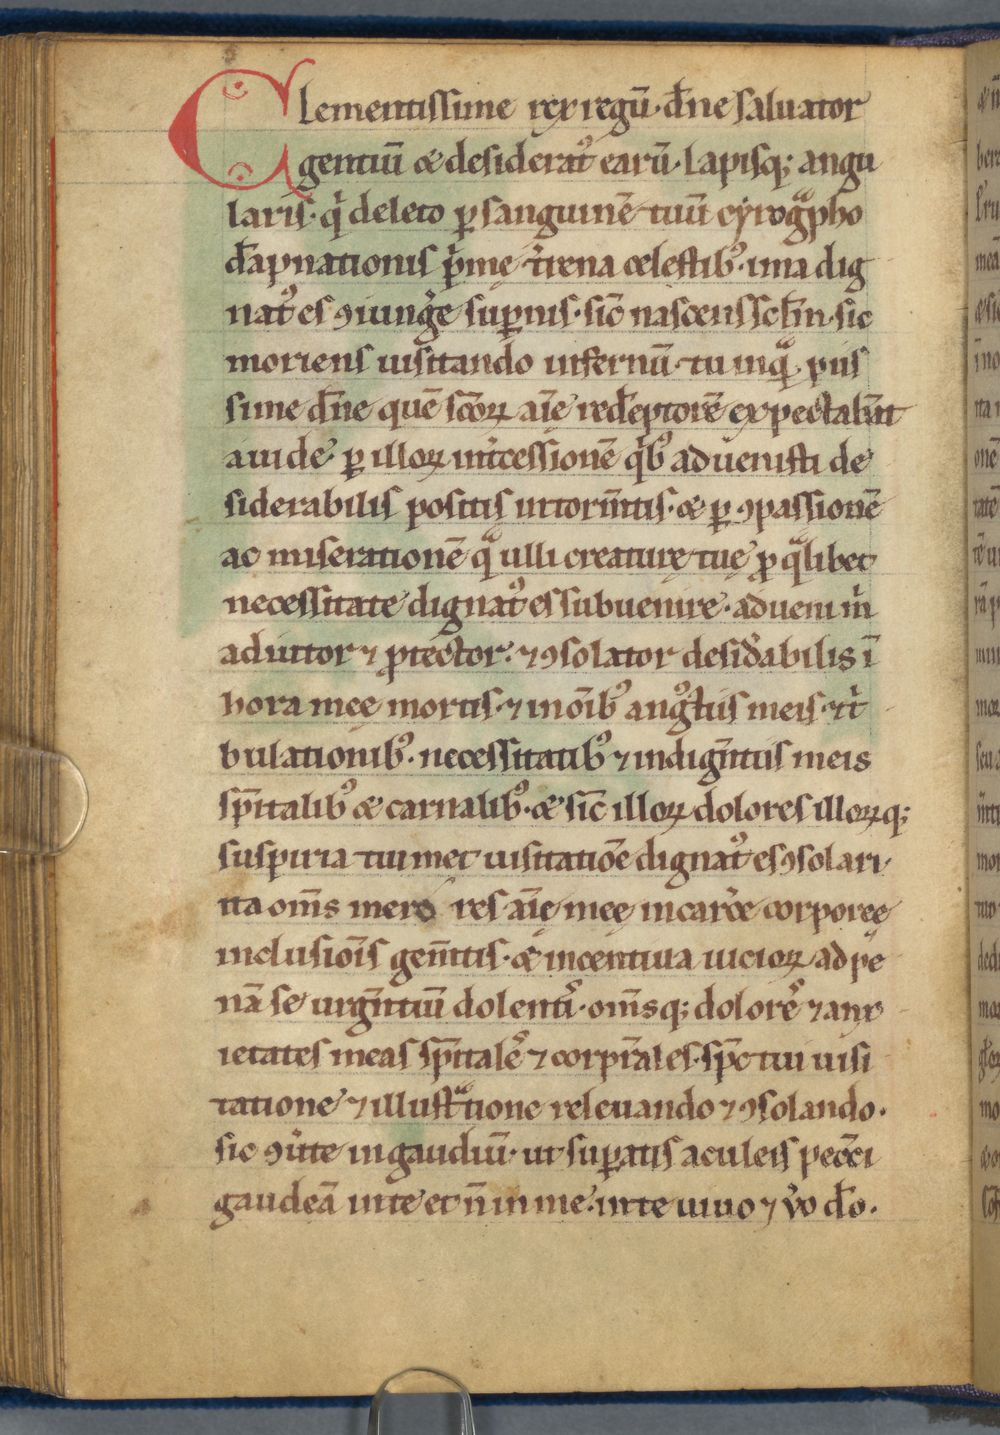 Clementissime rex regū· dn̄e saluator
gentiū & desideratꝰ earū· lapisq; angu
laris· qͥ deleto ꝑ sanguinē tuū cyrogͣpho
dāpnationis pͥmę tͥrena celestibꝰ· ima dig
natꝰ es ꝯiungͤe suꝑnis· sic̄ nascens sc̄lm· sic
moriens uisitando infernū· tu inqͣ piis
sime dn̄e quē sc̄oꝝ aīę redēptorē expectabāt
auide ꝑ illoꝝ int̉cessionē qͥbꝰ aduenisti de
siderabilis positis in torm̄tis· & ꝑ ꝯpassionē
ac miserationē qͣ ulli creaturę tuę ꝓ qͣlibet
necessitate dignatꝰ es subuenire· adueni m̄
adiutor ⁊ ꝓtector· ⁊ ꝯsolator desid̉abilis ī
hora meę mortis· ⁊ in oīb̄ꝰ angꝰstiis meis· ⁊ tͥ
bulationibꝰ· necessitatibꝰ ⁊ indigēntiis meis
sp̄italibꝰ & carnalibꝰ· & sic̄ illoꝝ dolores illoꝝq;
suspiria tui met uisitatiōe dignatꝰ es ꝯsolari·
ita om̄s merores aīę meę in carc̉e corporeę
inclusiōis gem̄tis· & incentiua uicioꝝ ad pe
nā se urgēntiū dolentis· om̄sq; dolores ⁊ anx
ietates meas sp̄itales ⁊ corpr̄ales· sp̄c tui uisi
tatione ⁊ illustͣtione releuando ⁊ ꝯsolando·
sic ꝯủte in gaudiū· ut suꝑatis aculeis pecc̄i
gaudeā in te et n̄ in me· in te uiuo ⁊ ũo dō·